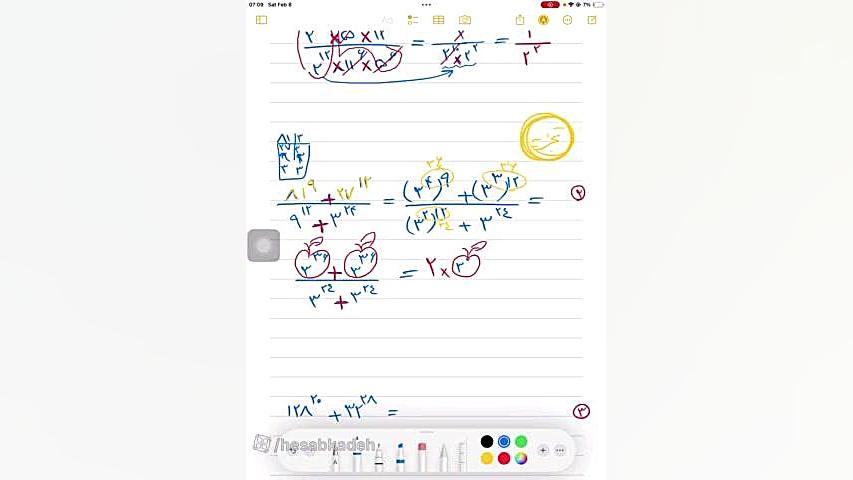 07:09 Sat Feb 8
7%
Aa
۲ × ۱۵ × ۱۲ / ۲^۱۲ = / ۲^۲ = ۱ / ۲^۲
۸۱ ۳
۲۷ ۳
۹ ۳
۳ ۳
(۸۱^۹ + ۲۷^۱۲) / (۹^۱۲ + ۳^۲۴) = ((۳^۴)^۹ + (۳^۳)^۱۲) / ((۳^۲)^۱۲ + ۳^۲۴) = ۲
۳۶ ۳۶
۲۴
(۳^۳۶ + ۳^۳۶) / (۳^۲۴ + ۳^۲۴) = ۲ × ۳
۱۲۸^۲۰ + ۳۲^۲۸ = ۳
/hesabkadeh